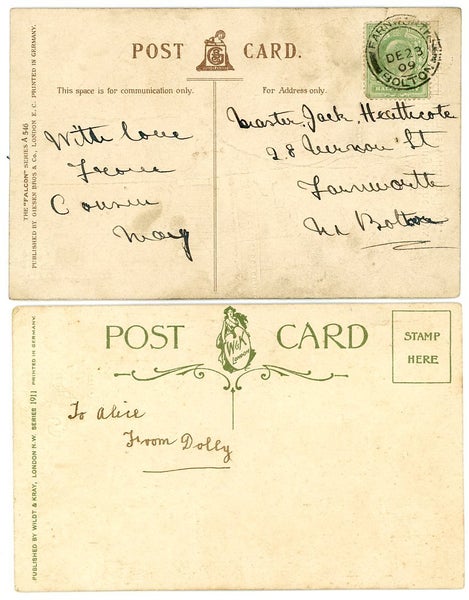 POST CARD.
This space is for communication only.
For Address only.
THE "FALCON" SERIES A 546
PUBLISHED BY GIESEN BROS & Co., LONDON E. C. PRINTED IN GERMANY.
DE 23
09
BOLTON
HALF
With love
From
Cousin
Mary
Master Jack Heathcote
28 Vernon St
Farnworth
Nr Bolton
POST CARD
W&K
London
STAMP
HERE
PUBLISHED BY WILDT & KRAY, LONDON N.W. SERIES 1911 PRINTED IN GERMANY.
To Alice
From Dolly